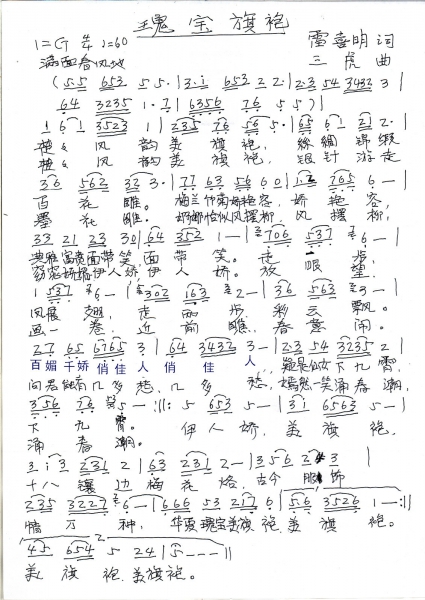 瑰宝旗袍
1=G 4/4 ♩=60
雷喜明 词
满面春风地
三虎 曲
(5·5 653 5 5·|3·i 653 2 2·|2·3 54 3432 3|
64 3235 1·7|6356 76 5 5)|
1 6 1 3523 1|235 76 56 5·|65 61 21 2·|
楚楚风韵美旗袍，丝绸锦缎
楚楚风韵美旗袍，银针游走
36 562 32 3·|77 63 56 60|1·2 765 6·|
百花雕。梅兰竹菊娇艳容，娇艳容，
墨花雕。婀娜恰似风摆柳，风摆柳，
33 21 23 30|64 352 1—|706 537 6—|
面带笑面带笑。走步，
伊人娇伊人娇。放眼望，
1 537 6—|302 163 2—|36 563 3—|
凤展翅，走步，彩云飘。
画一卷，近前瞧，春意闹。
27 65 6765 3|64 3432 3—|23 54 3235 2|
百媚千娇俏佳人俏佳人，疑是仙女下九霄，
问君能有几多愁，几多愁，嫣然一笑涌春潮，
356 76 5—:||: 5 653 5—|3i 6563 5—|
下九霄。伊人娇，美旗袍，
涌春潮。
3 i 3 231 2|63 231 2—|356 2 4 3|
十八镶边梅花烙，古今服饰
235 3227 6—|666 53 217 6|56 3526 1—:||
情万种，华夏瑰宝美旗袍，美旗袍。
45 654 5 24|5———||
美旗袍，美旗袍。